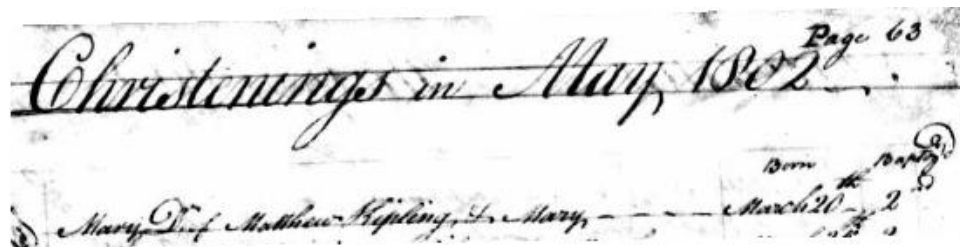 Page 63
Christenings in May, 1802
Born Baptz'd
Mary Dr of Matthew Kipling, & Mary, March 20th 2nd